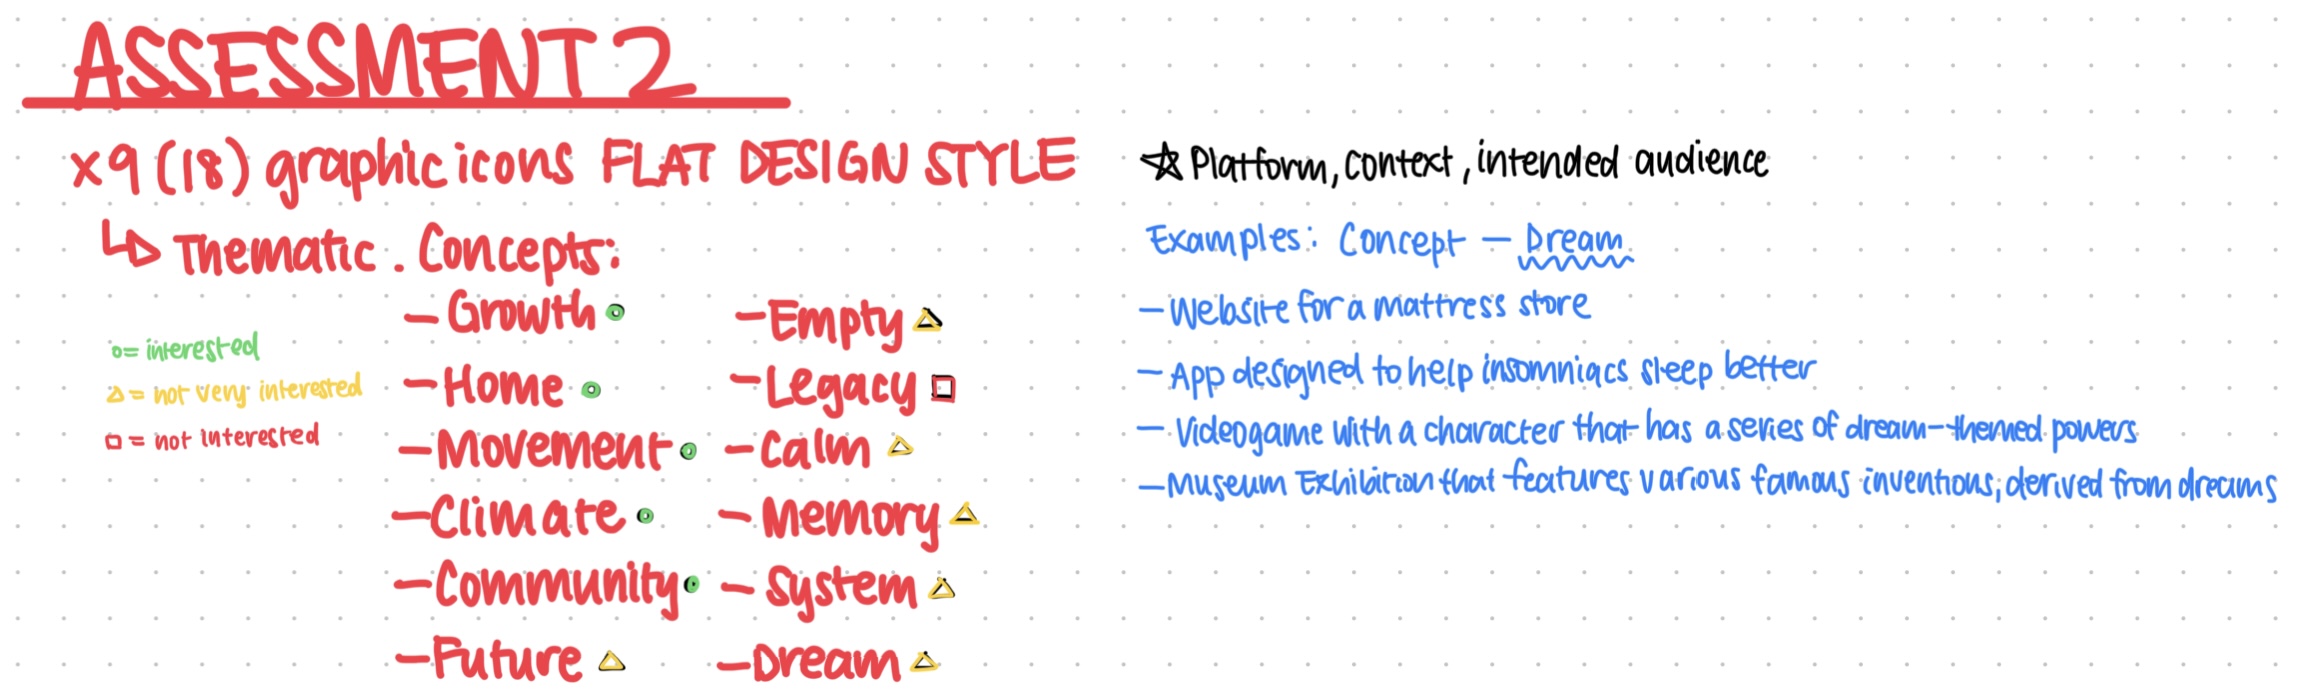 ASSESSMENT 2
x9 (18) graphic icons FLAT DESIGN STYLE
Thematic. Concepts:
o= interested
△= not very interested
□= not interested
- Growth
- Home
- Movement
- Climate
- Community
- Future
- Empty
- Legacy
- Calm
- Memory
- System
- Dream
☆ Platform, context, intended audience
Examples: Concept - Dream
- Website for a mattress store
- App designed to help insomniacs sleep better
- Videogame with a character that has a series of dream-themed powers
- Museum Exhibition that features various famous inventions, derived from dreams